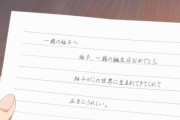 一歳の柚子へ
柚子、一歳の誕生日おめでとう。
柚子がこの世界に生まれてきてくれて
本当にうれしい。